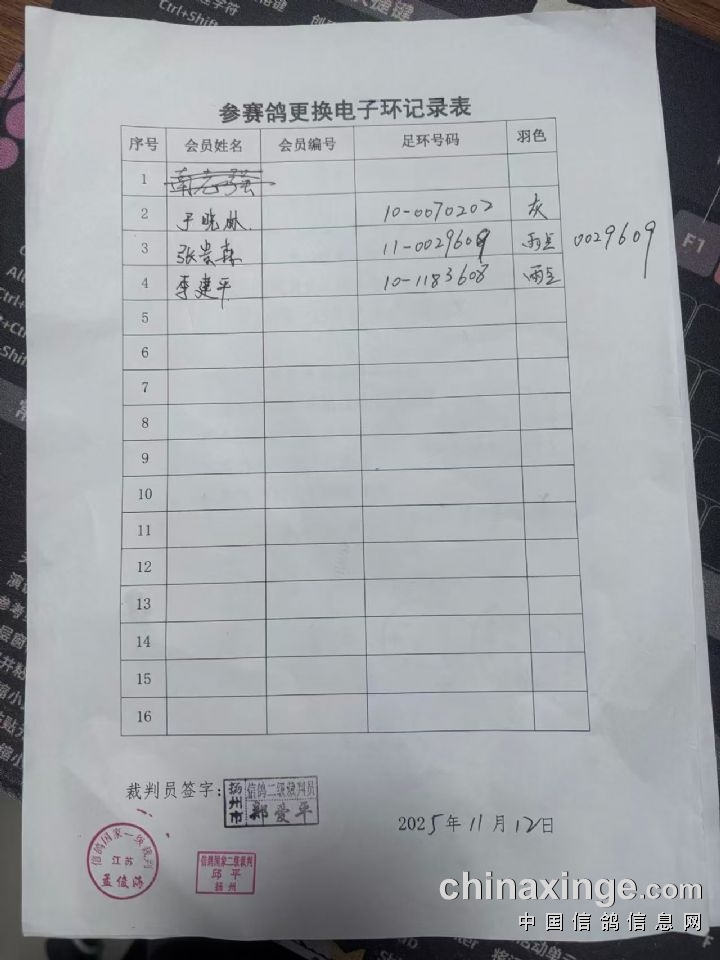 参赛鸽更换电子环记录表
序号 会员姓名 会员编号 足环号码 羽色
1
2 于晓林 10-0070202 灰
3 张崇森 11-0029609 雨点 0029609
4 李建平 10-1183608 雨点
5
6
7
8
9
10
11
12
13
14
15
16
裁判员签字: 扬州市 信鸽二级裁判员 郑爱平
2025年11月12日
信鸽国家一级裁判
江苏
孟俊海
信鸽国家二级裁判
邱平
扬州
chinaxinge.com
中国信鸽信息网
F1
Ctrl+Shift